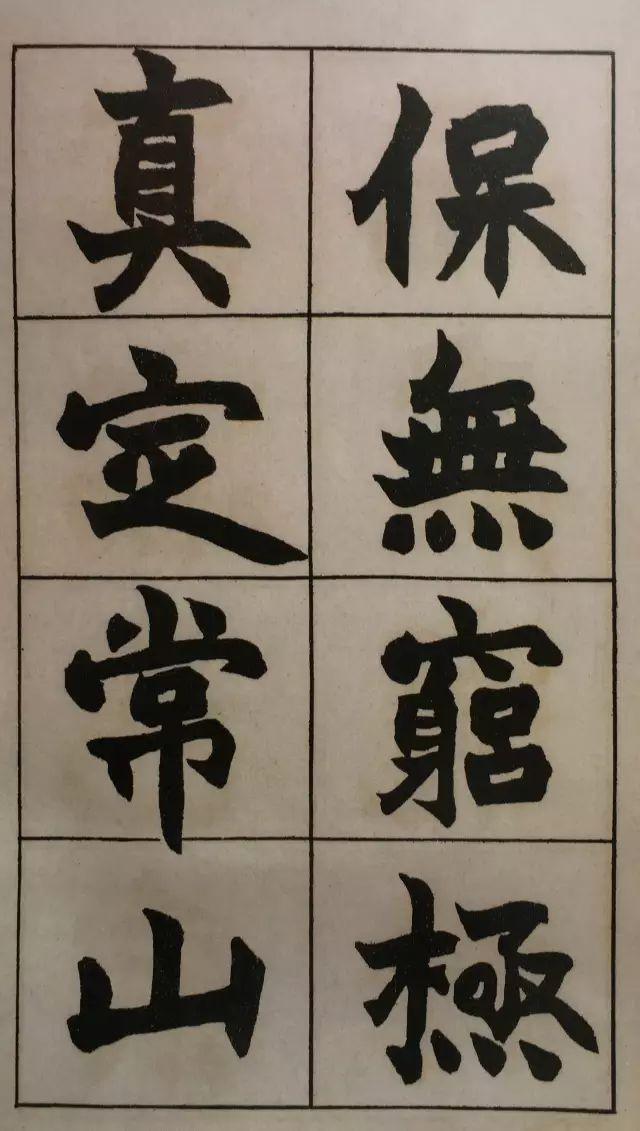 保無窮極
真定常山